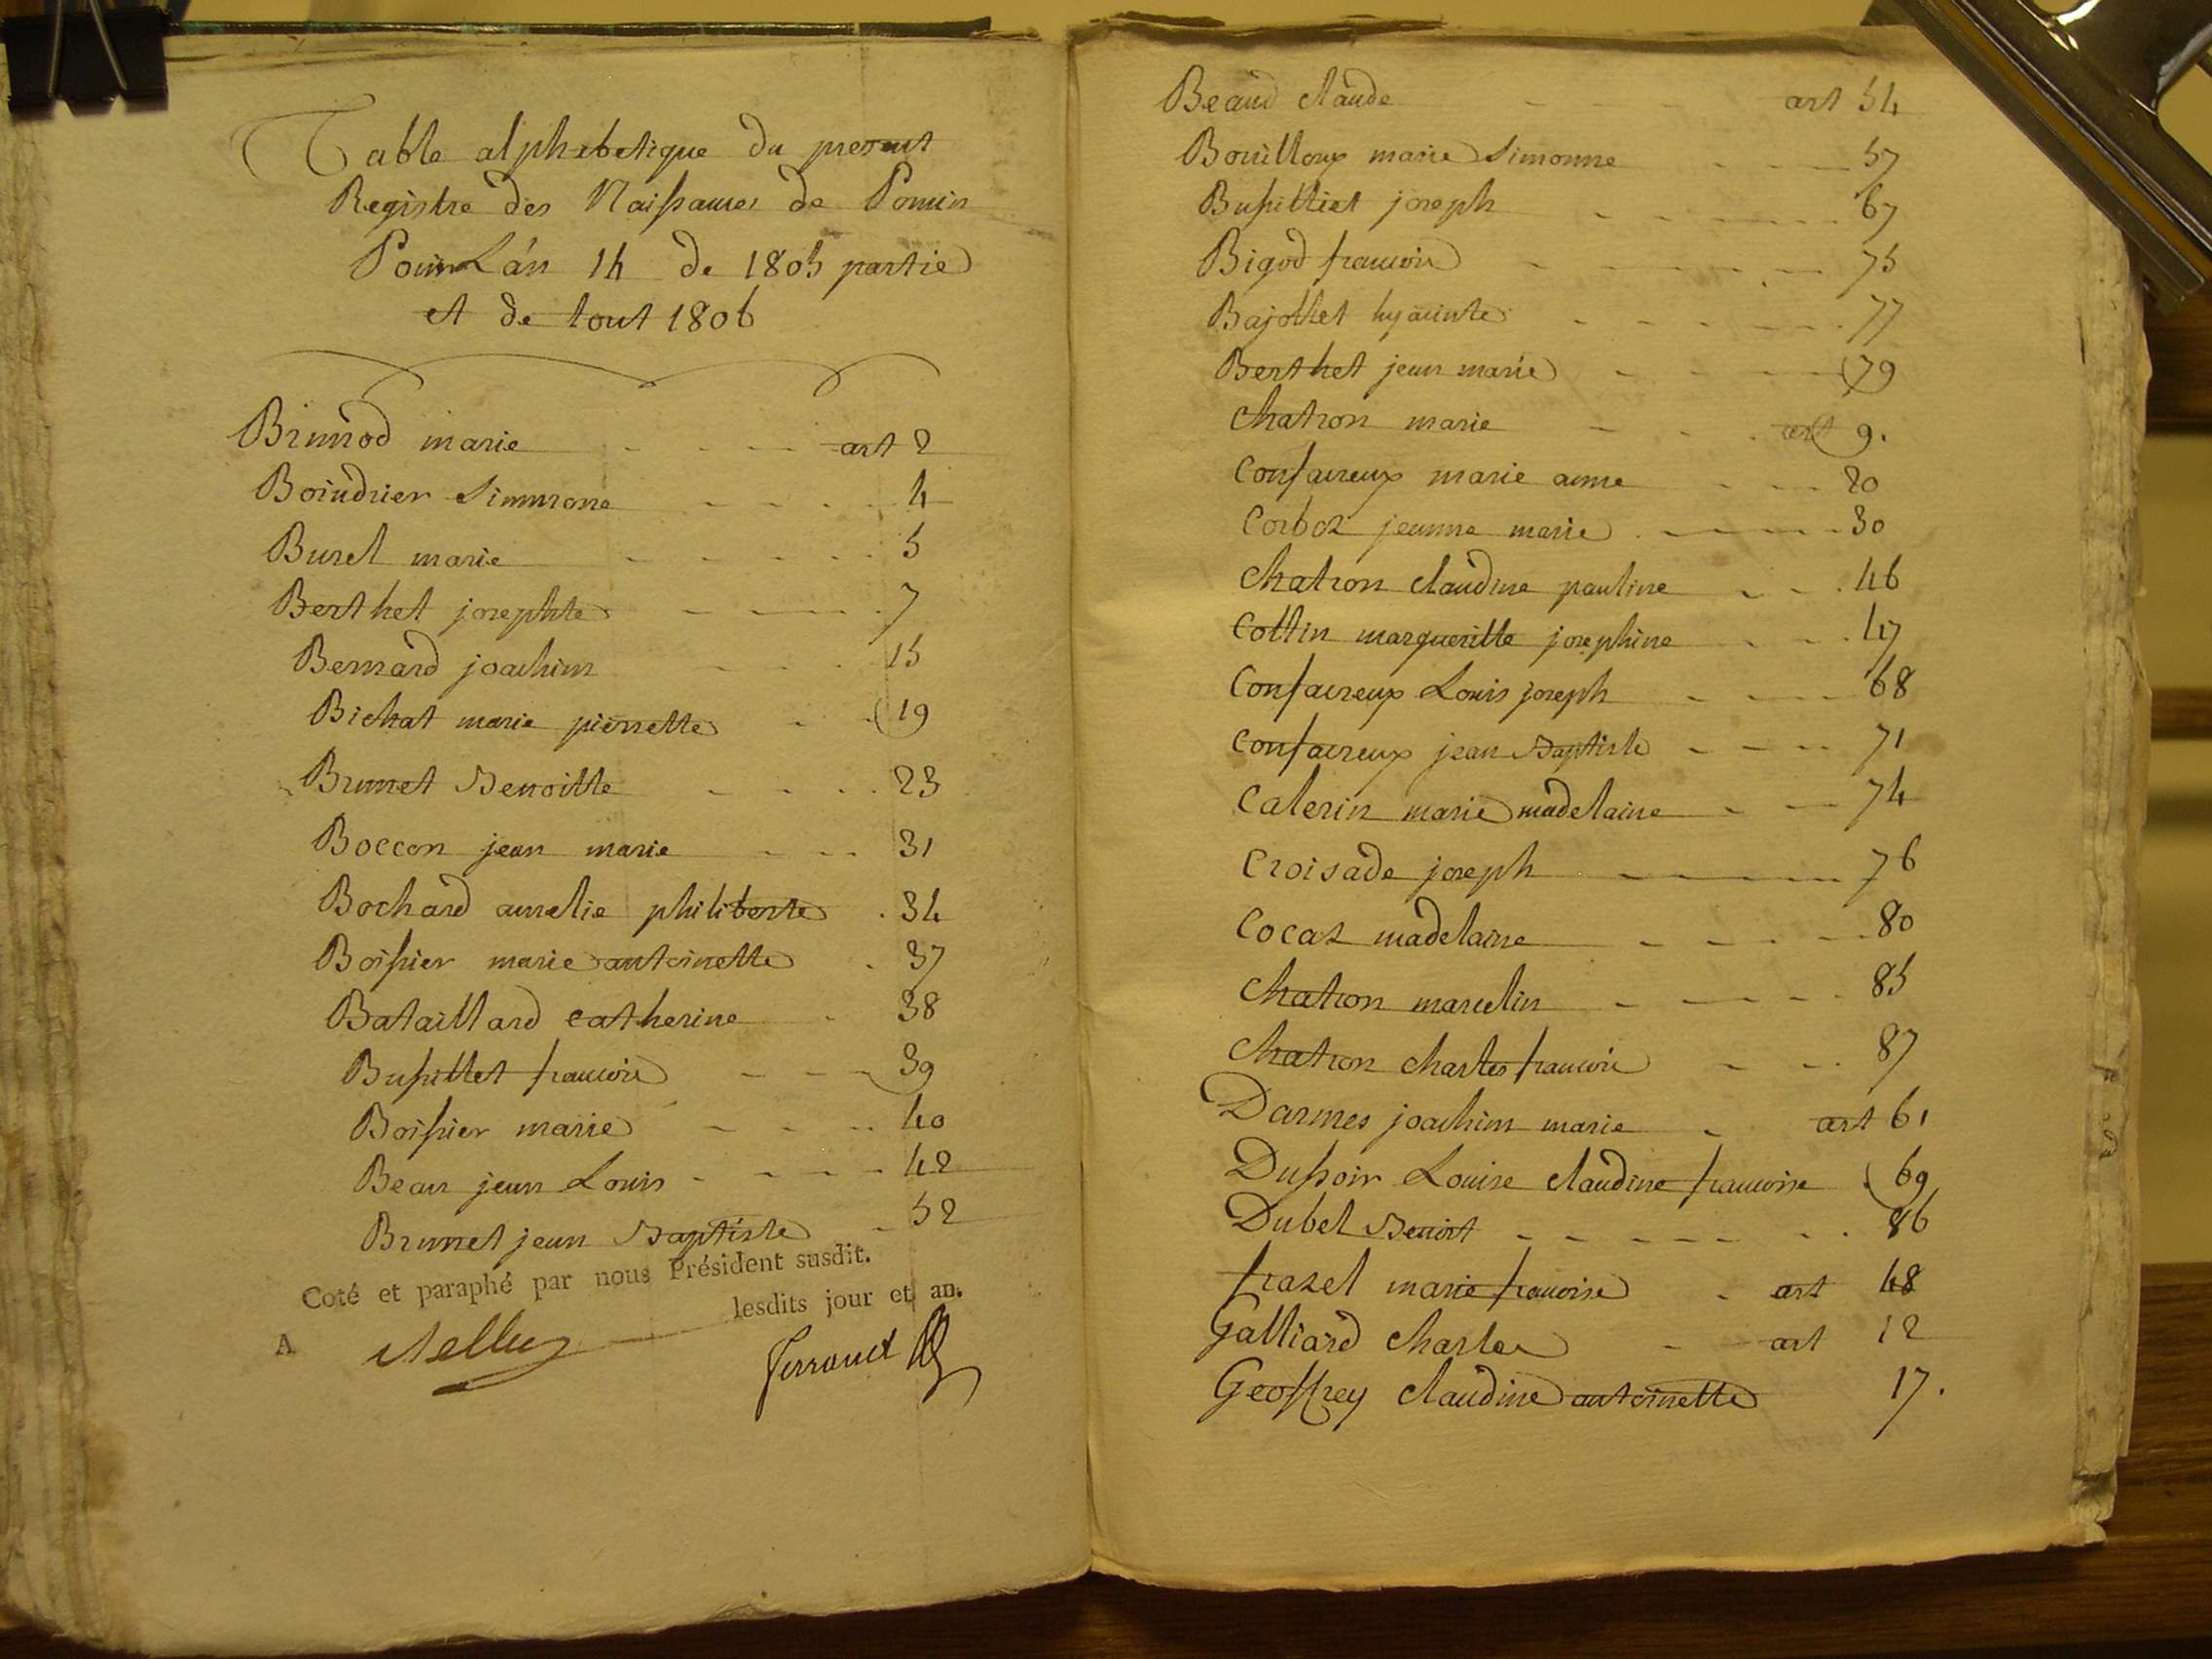 Table alphabetique du present
Registre des Naissances de Poncin
Pour L'an 14 de 1805 partie
et de tout 1806
Brunod marie art 2
Boindrier Simmone 4
Buret marie 5
Berthet josephte 7
Bernard joachim 15
Bichat marie pierrette 19
Brunet Benoitte 23
Boccon jean marie 31
Bochard amelie philiberte 34
Boissier marie antoinette 37
Bataillard catherine 38
Bussillet francois 39
Boissier marie 40
Beau jean Louis 42
Brunet jean Baptiste 52
Coté et paraphé par nous Président susdit.
A lesdits jour et an.
Ferrand
Beaud claude art 54
Bouilloux marie Simonne 57
Bussilliet joseph 67
Bigod francois 75
Bajollet hyacinte 77
Berthet jean marie 79
Chatron marie art 9.
Confavreux marie anne 20
Corboz jeanne marie 30
Chatron claudine pauline 46
Cottin margueritte josephine 47
Confavreux Louis joseph 68
Confavreux jean Baptiste 71
Calerin marie madelaine 74
Croisade joseph 76
Cocaz madelaine 80
Chatron marcelin 85
Chatron charles francois 87
Darmes joachim marie art 61
Dussoir Louise claudine francoise 69
Dubet Benoit 86
frazet marie francoise art 48
Galliard charles art 12
Geoffrey claudine antoinette 17.